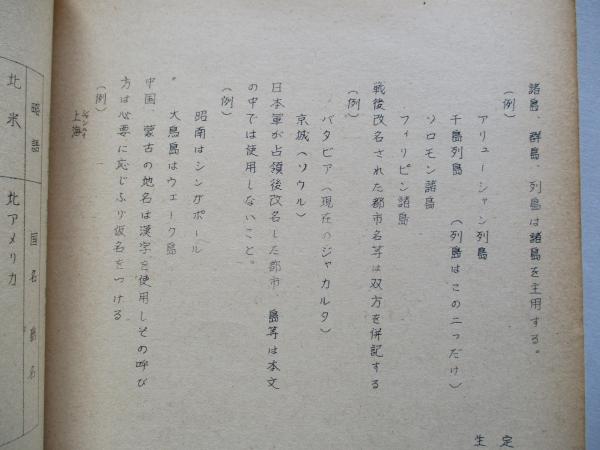 定
生
諸島、群島、列島は諸島を主用する。
(例)
アリューシャン列島
千島列島 (列島はこの二つだけ)
ソロモン諸島
フィリピン諸島
戦後改名された都市名等は双方を併記する
(例)
バタビア(現在のジャカルタ)
京城(ソウル)
日本軍が占領後改名した都市、島等は本文
の中では使用しないこと。
(例)
昭南はシンガポール
大鳥島はウェーク島
中国、蒙古の地名は漢字を使用しその呼び
方は必要に応じふり仮名をつける
(例)
上海
略語 国名島名
北米 北アメリカ